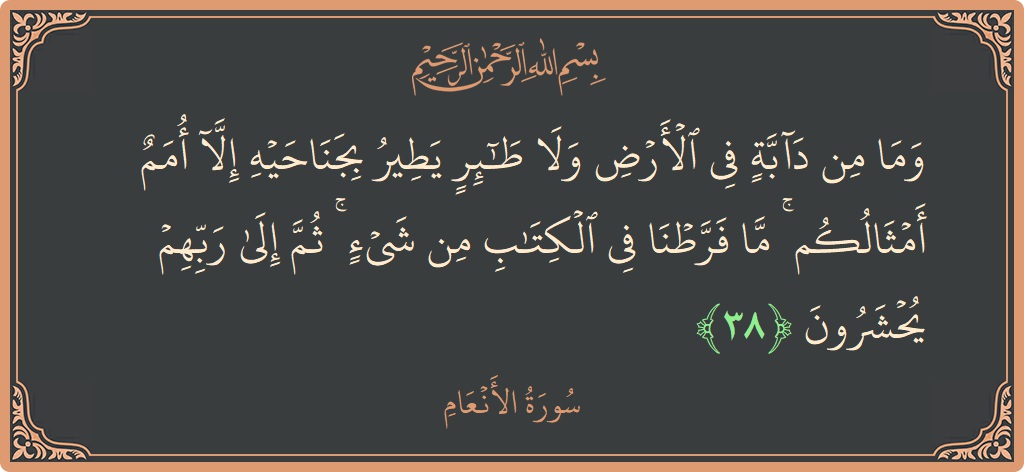 بِسْمِ اللهِ الرَّحْمٰنِ الرَّحِيْمِ
وَمَا مِن دَآبَّةٍ فِي ٱلْأَرْضِ وَلَا طَـٰٓئِرٍ يَطِيرُ بِجَنَاحَيْهِ إِلَّآ أُمَمٌ
أَمْثَالُكُم ۚ مَّا فَرَّطْنَا فِي ٱلْكِتَـٰبِ مِن شَىْءٍ ۚ ثُمَّ إِلَىٰ رَبِّهِمْ
يُحْشَرُونَ ﴿٣٨﴾
سُورَةُ الأَنْعَامِ